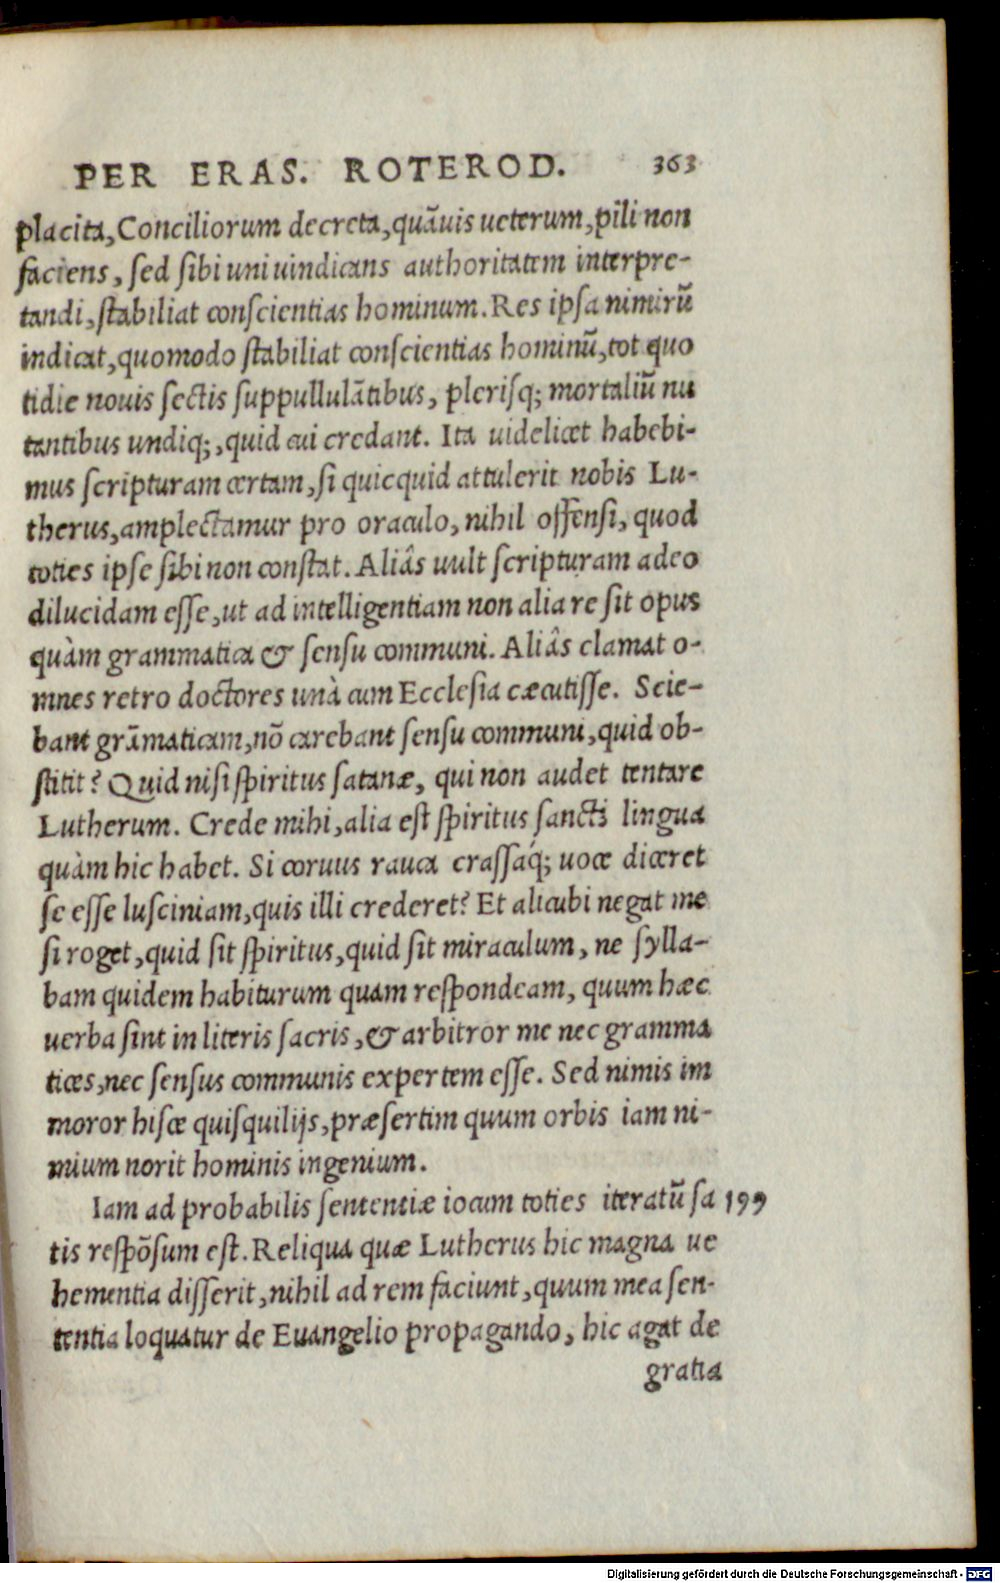 PER ERAS. ROTEROD. 363
placita, Conciliorum decreta, quāuis ueterum, pili non
faciens, sed sibi uni uindicans authoritatem interpre-
tandi, stabiliat conscientias hominum. Res ipsa nimirū
indicat, quomodo stabiliat conscientias hominū, tot quo
tidie nouis sectis suppullulātibus, plerisq; mortaliū nu
tantibus undiq;, quid cui credant. Ita uidelicet habebi-
mus scripturam certam, si quicquid attulerit nobis Lu-
therus, amplectamur pro oraculo, nihil offensi, quod
toties ipse sibi non constat. Aliâs uult scripturam adeo
dilucidam esse, ut ad intelligentiam non alia re sit opus
quàm grammatica & sensu communi. Aliâs clamat o-
mnes retro doctores unà cum Ecclesia cæcutisse. Scie-
bant grāmaticam, nō carebant sensu communi, quid ob-
stitit? Quid nisi spiritus satanæ, qui non audet tentare
Lutherum. Crede mihi, alia est spiritus sancti lingua
quàm hic habet. Si coruus rauca crassaq́; uoce diceret
se esse lusciniam, quis illi crederet? Et alicubi negat me
si roget, quid sit spiritus, quid sit miraculum, ne sylla-
bam quidem habiturum quam respondeam, quum hæc
uerba sint in literis sacris, & arbitror me nec gramma
tices, nec sensus communis expertem esse. Sed nimis im
moror hisce quisquilijs, præsertim quum orbis iam ni-
mium norit hominis ingenium.
Iam ad probabilis sententiæ iocum toties iteratū sa 199
tis respōsum est. Reliqua quæ Lutherus hic magna ue
hementia disserit, nihil ad rem faciunt, quum mea sen-
tentia loquatur de Euangelio propagando, hic agat de
gratia
Digitalisierung gefördert durch die Deutsche Forschungsgemeinschaft - DFG